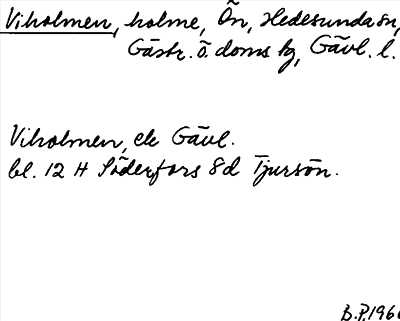 Viholmen, holme, Ön, Hedesunda sn,
Gästr. ö. doms hg, Gävl. l.
Viholmen, ek Gävl.
bl. 12 H Söderfors 8d Tjursön.
B.P. 1966